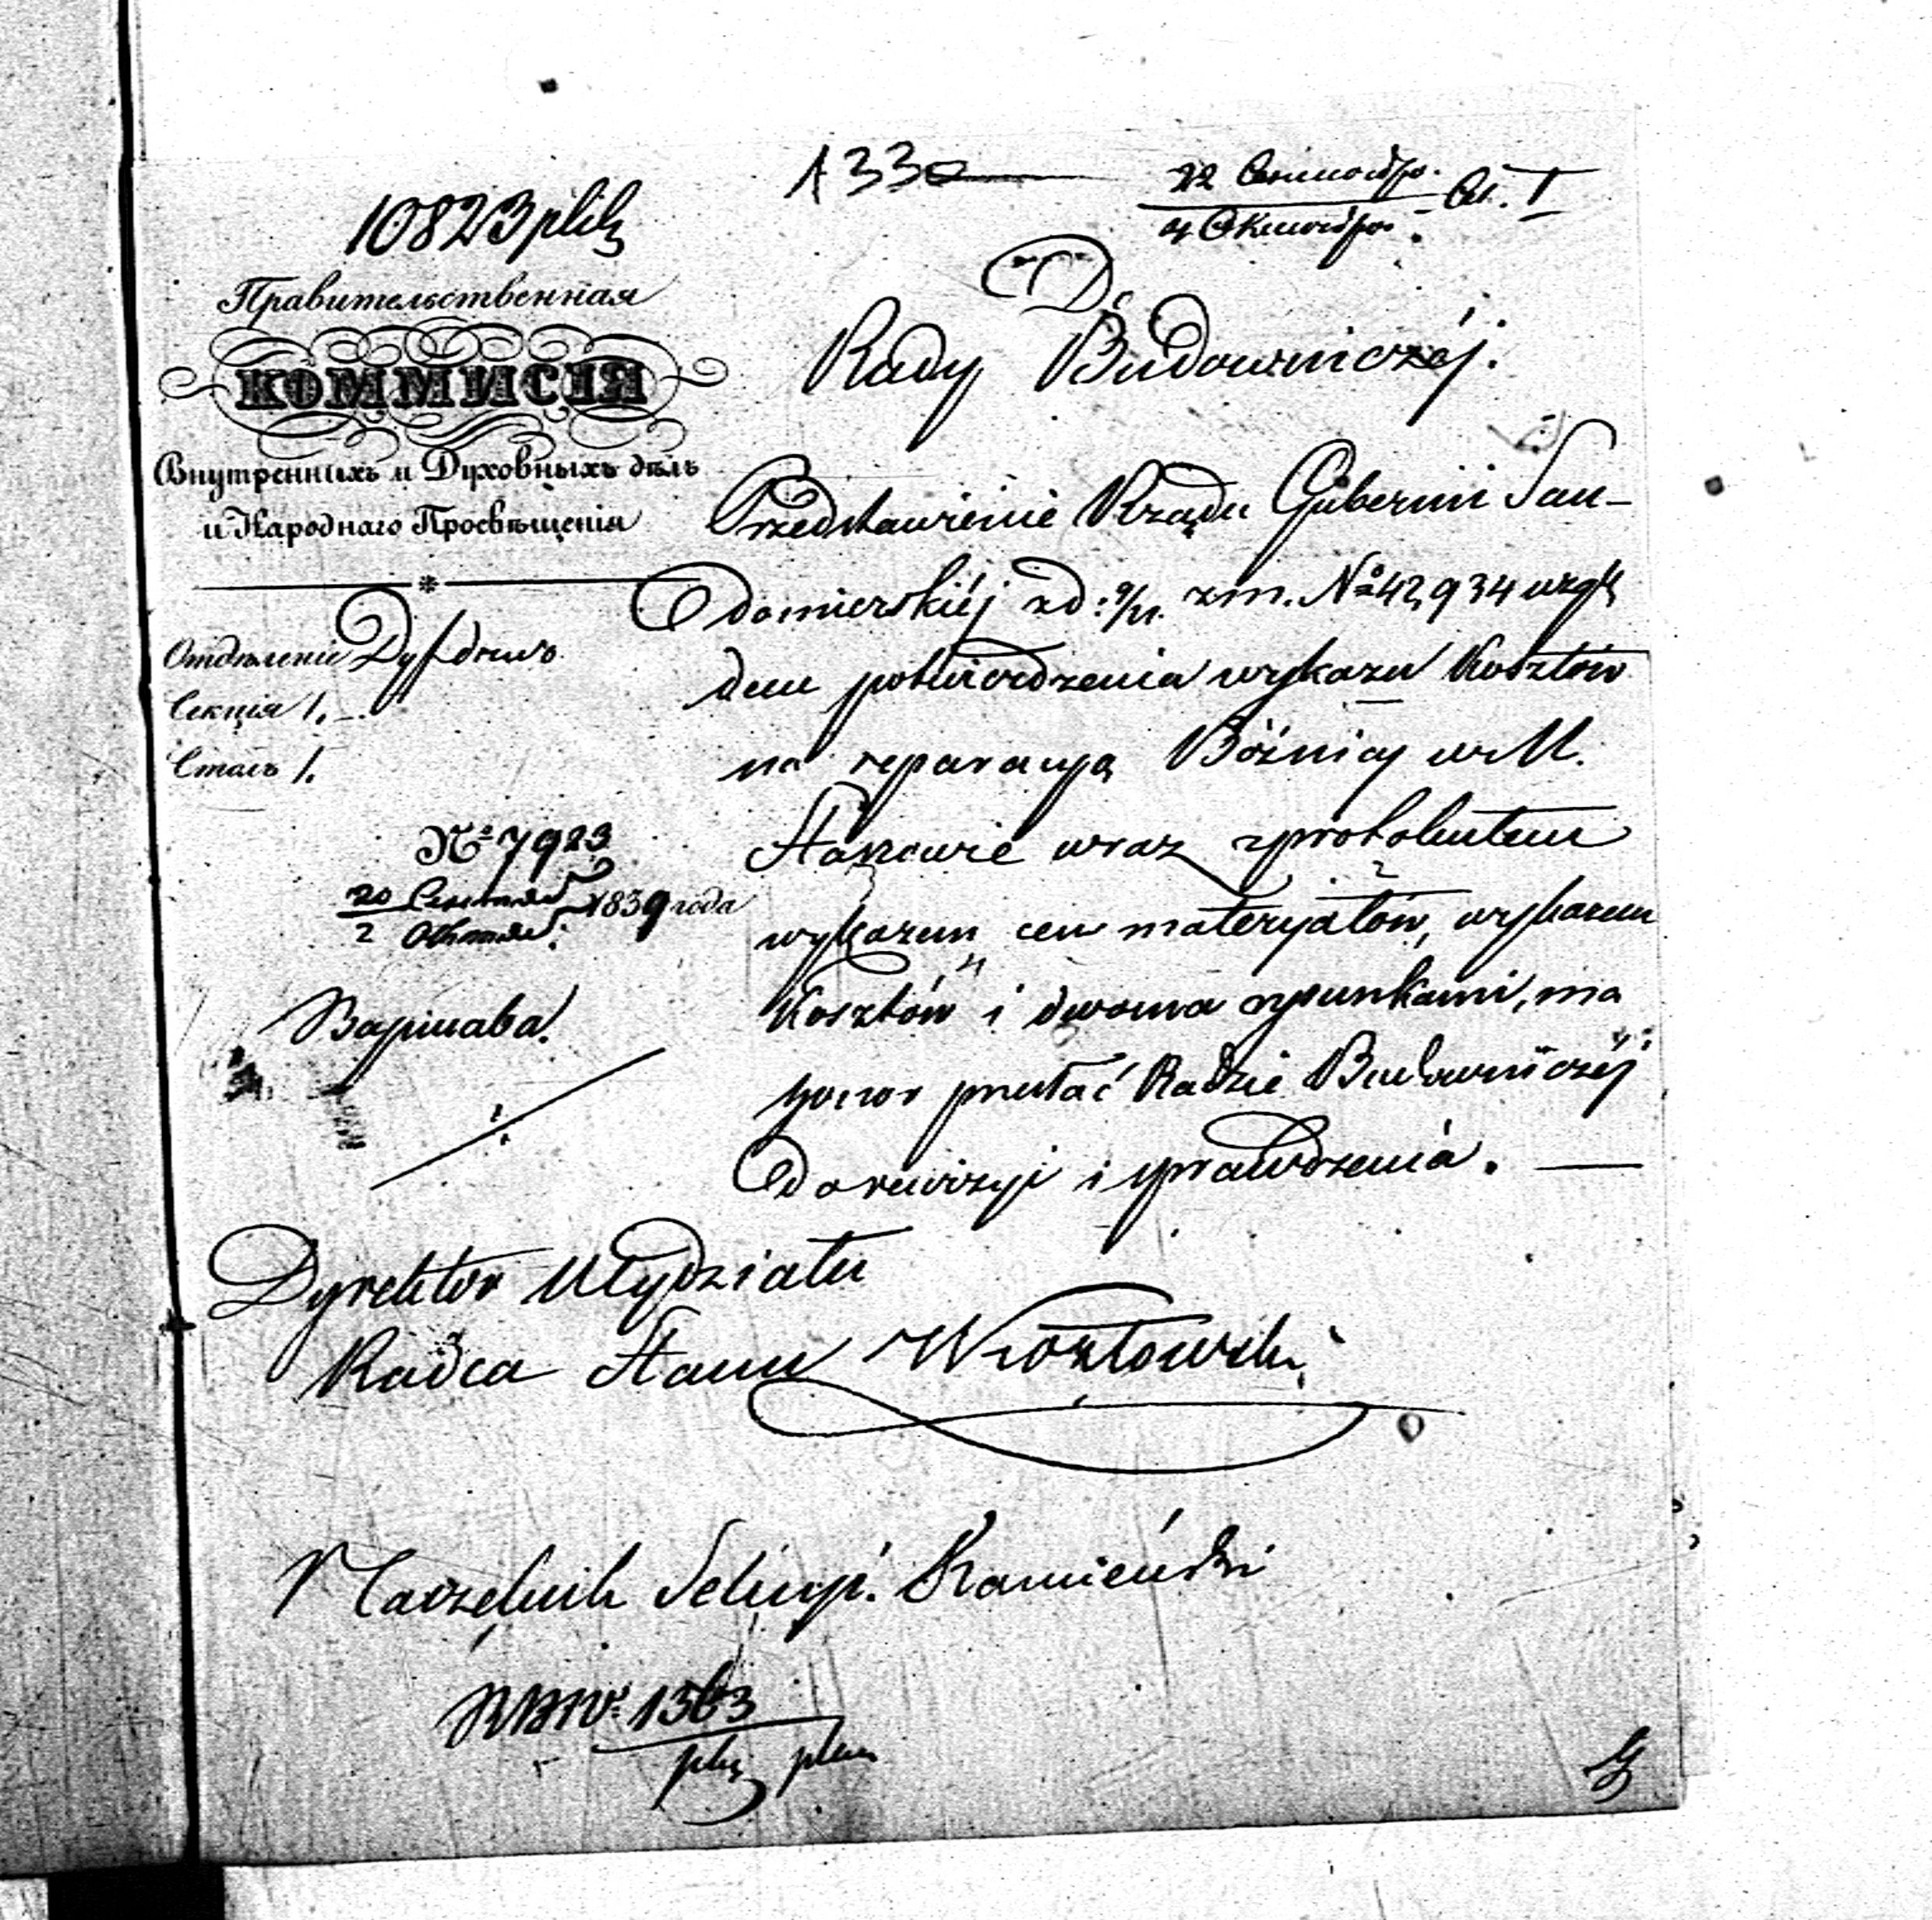 10823
A 330
22 Сентября.
4 Октября.
Правительственная
КОММИСІЯ
Внутреннихъ и Духовныхъ дѣлъ
и Народнаго Просвѣщенія
Отдѣленіе Дух. дѣлъ
Секція 1.
Столъ 1.
№ 7923
20 Сентяб
2 Октяб: 1839 года
Варшава.
Do
Rady Budowniczéj.
Przedstawienie Rządu Gubernii San-
domierskiéj z d: 9/21. z m. No 42,934 wzglę
dem potwierdzenia wykazu Kosztów
na reparacyą Bóźnicy w M.
Staszowie wraz z protokułem
wykazem cen materyałów, wykazem
Kosztów i dwoma rysunkami, ma
honor przesłać Radzie Budowniczéj
do rewizyi i sprawdzenia. —
Dyrektor Wydziału
Radca Stanu Kozłowski
Naczelnik Sekcyi. Kamieński
1563